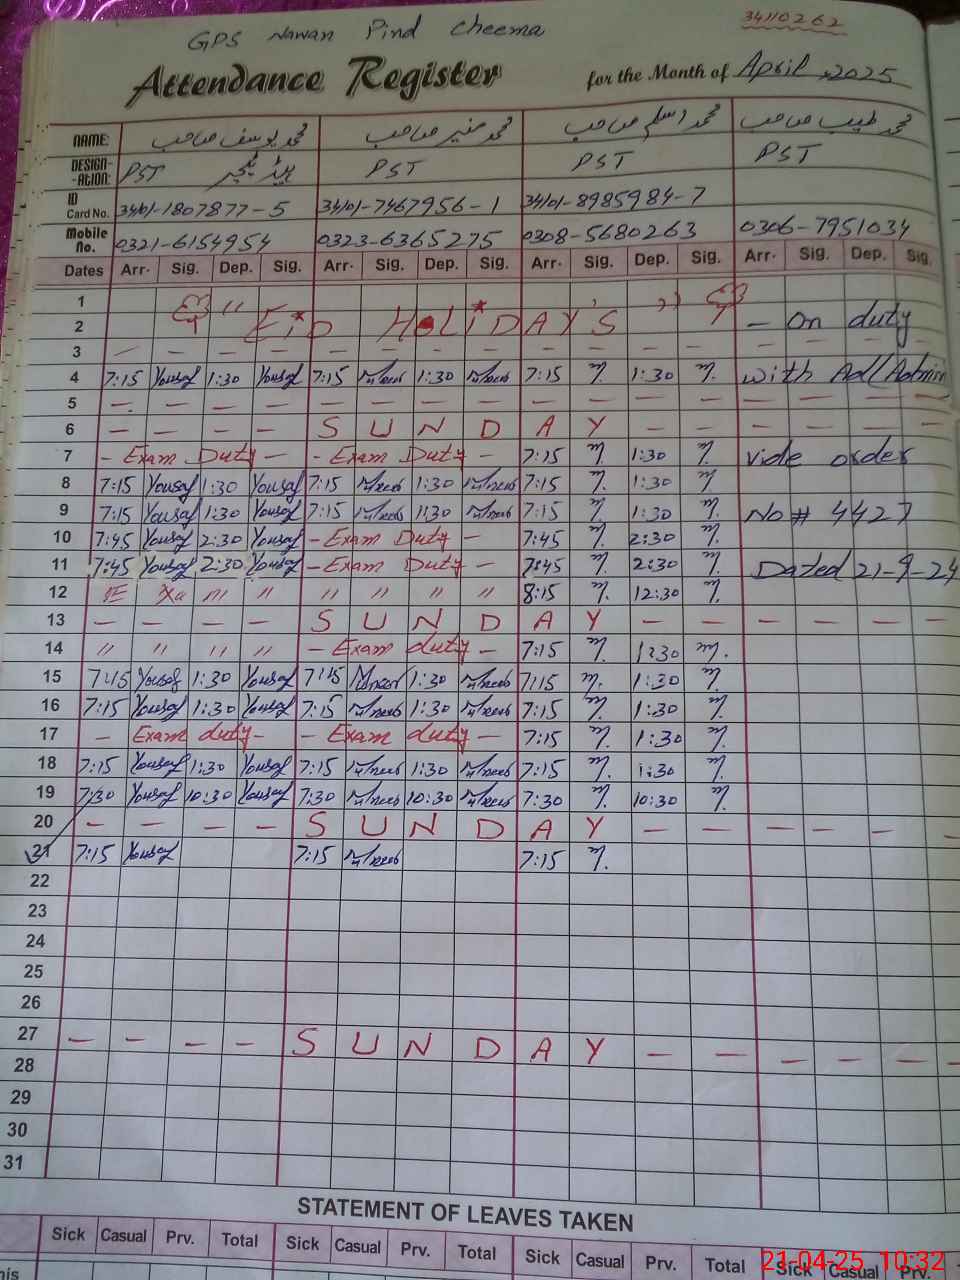 34110262
GPS Nawan Pind Cheema
Attendance Register for the Month of April, 2025
NAME: محمد یوسف صاحب محمد منیر صاحب محمد اسلم صاحب محمد طیب صاحب
DESIGN-ATION: PST ہیڈ ٹیچر PST PST PST
ID Card No. 34101-1807877-5 34101-7467956-1 34101-8985984-7
Mobile No. 0321-6154954 0323-6365275 0308-5680263 0306-7951034
Dates Arr. Sig. Dep. Sig. Arr. Sig. Dep. Sig. Arr. Sig. Dep. Sig. Arr. Sig. Dep. Sig.
1
2 " EiD HOLiDAY'S " - On duty
3 - - - - - - - - - - - - - - - -
4 7:15 Yousaf 1:30 Yousaf 7:15 1:30 7:15 M. 1:30 M. with Ad/Admin
5 - - - - - - - - - - - - - - - -
6 - - - - S U N D A Y - - - - - -
7 - Exam Duty - - Exam Duty - 7:15 M 1:30 M. vide order
8 7:15 Yousaf 1:30 Yousaf 7:15 1:30 7:15 M. 1:30 M.
9 7:15 Yousaf 1:30 Yousaf 7:15 1:30 7:15 M. 1:30 M. No # 4427
10 7:45 Yousaf 2:30 Yousaf - Exam Duty - 7:45 M. 2:30 M.
11 7:45 Yousaf 2:30 Yousaf - Exam Duty - 7:45 M. 2:30 M. Dated 21-9-24
12 " " " " " 8:15 M. 12:30 M.
13 - - - - S U N D A Y - - - - - -
14 " " " " - Exam duty - 7:15 M. 1:30 M.
15 7:15 Yousaf 1:30 Yousaf 7:15 1:30 7:15 M. 1:30 M.
16 7:15 Yousaf 1:30 Yousaf 7:15 1:30 7:15 M. 1:30 M.
17 - Exam duty - - Exam duty - 7:15 M. 1:30 M.
18 7:15 Yousaf 1:30 Yousaf 7:15 1:30 7:15 M. 1:30 M.
19 7:30 Yousaf 10:30 Yousaf 7:30 10:30 7:30 M. 10:30 M.
20 - - - - S U N D A Y - - - - - -
21 7:15 Yousaf 7:15 7:15 M.
22
23
24
25
26
27 - - - - S U N D A Y - - - - - -
28
29
30
31
STATEMENT OF LEAVES TAKEN
Sick Casual Prv. Total Sick Casual Prv. Total Sick Casual Prv. Total Sick Casual Prv.
21-04-25 10:32